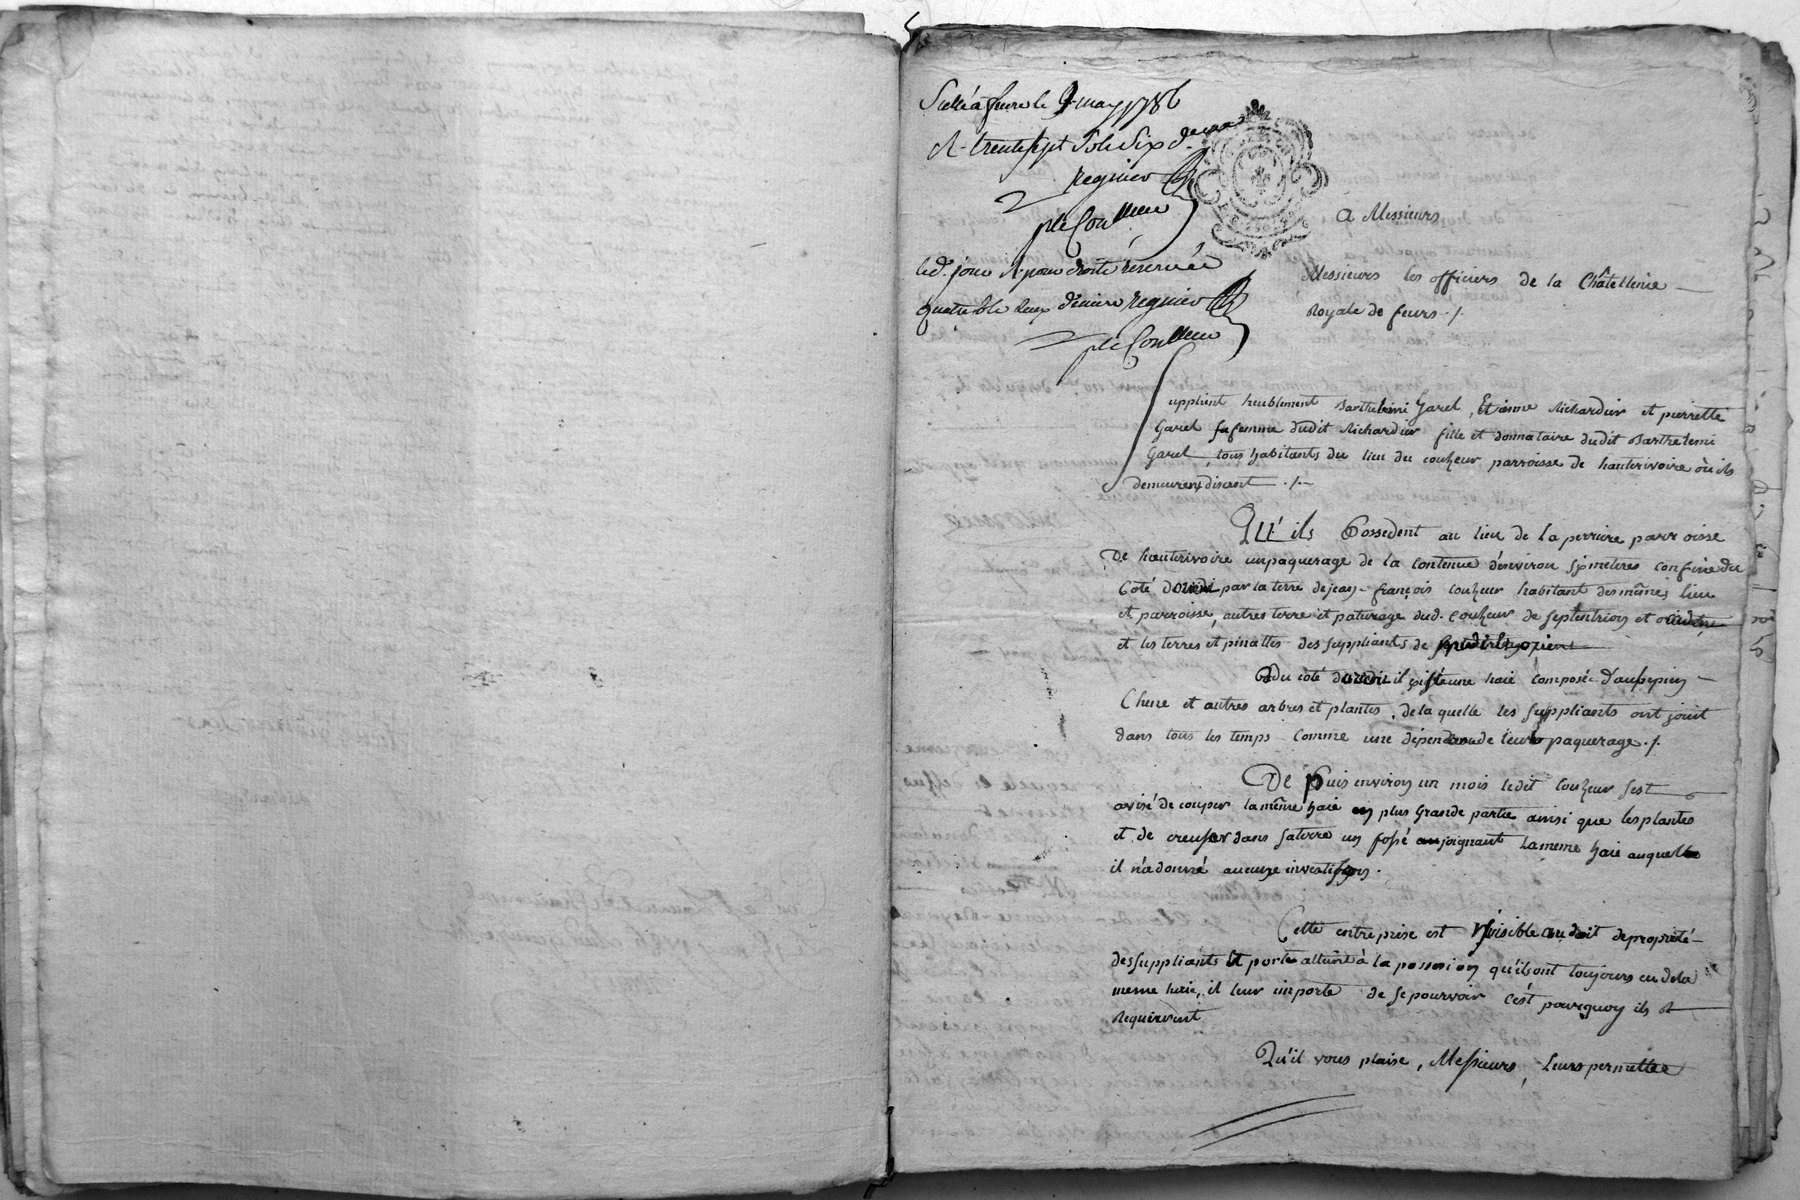 Scellé à feurs le 9 may 1786
R. trente sept sols six d.
regnier
led. jour R. pour droits réservés
quatre sols deux deniers regnier
A Messieurs
Messieurs les officiers de la Châtellenie
Royale de feurs ./.
Supplient heublement Barthelemi Garel, Etienne Richardier et pierrette
Garel sa femme dudit Richardier fille et donnataire dudit Barthelemi
Garel, tous habitants du lieu du couheur parroisse de hauterivoire où ils
demeurent disent ./.
QU'ils Possedent au lieu de la perriere parroisse
De hauterivoire un paquerage de la contenue d'environ metérées confiné du
Coté par la terre de jean-françois couheur habitant des mêmes lieu
et parroisse, autres terre et paturage dud. couheur de septentrion et
et les terres et pinattes des suppliants de
Du coté il existe une haie composée d'aubepin
Chene et autres arbres et plantes, de la quelle les suppliants ont jouit
dans tous les temps comme une dépendance de leur paquerage ./.
De puis environ un mois ledit couheur s'est
avisé de couper la même haie en plus grande partie ainsi que les plantes
et de creuser dans sa terre un fossé joignant la meme haie auquel
il n'a donné aucune investison.
Cette entreprise est nuisible au droit de propriété
des suppliants et porte atteint à la possesion qu'ils ont toujours eu de la
meme haie, il leur importe de se pourvoir c'est pourquoy ils
Requierent
Qu'il vous plaise, Messieurs, Leurs permettre